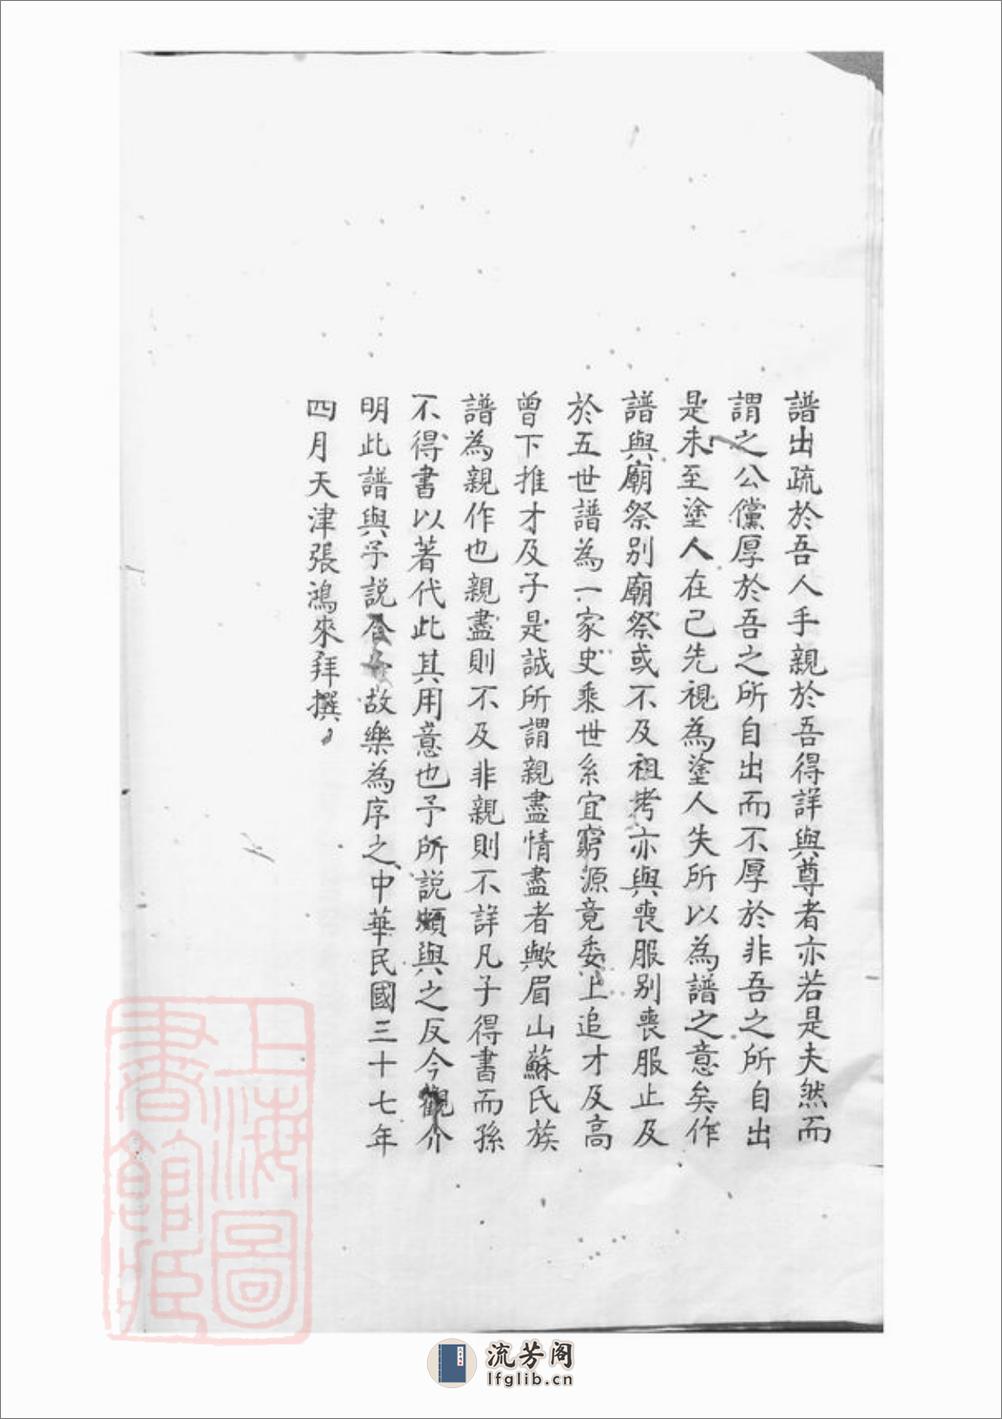 譜出疏於吾人手親於吾得詳與尊者亦若是夫然而
謂之公儻厚於吾之所自出而不厚於非吾之所自出
是未至塗人在己先視為塗人失所以為譜之意矣作
譜與廟祭別廟祭或不及祖考亦與喪服別喪服止及
於五世譜為一家史乘世系宜窮源竟委上追才及高
曾下推才及子是誠所謂親盡情盡者歟眉山蘇氏族
譜為親作也親盡則不及非親則不詳凡子得書而孫
不得書以著代此其用意也予所說頗與之反今觀介
明此譜與予說合故樂為序之中華民國三十七年
四月天津張鴻來拜撰
上海圖書館藏
流芳阁
lfglib.cn